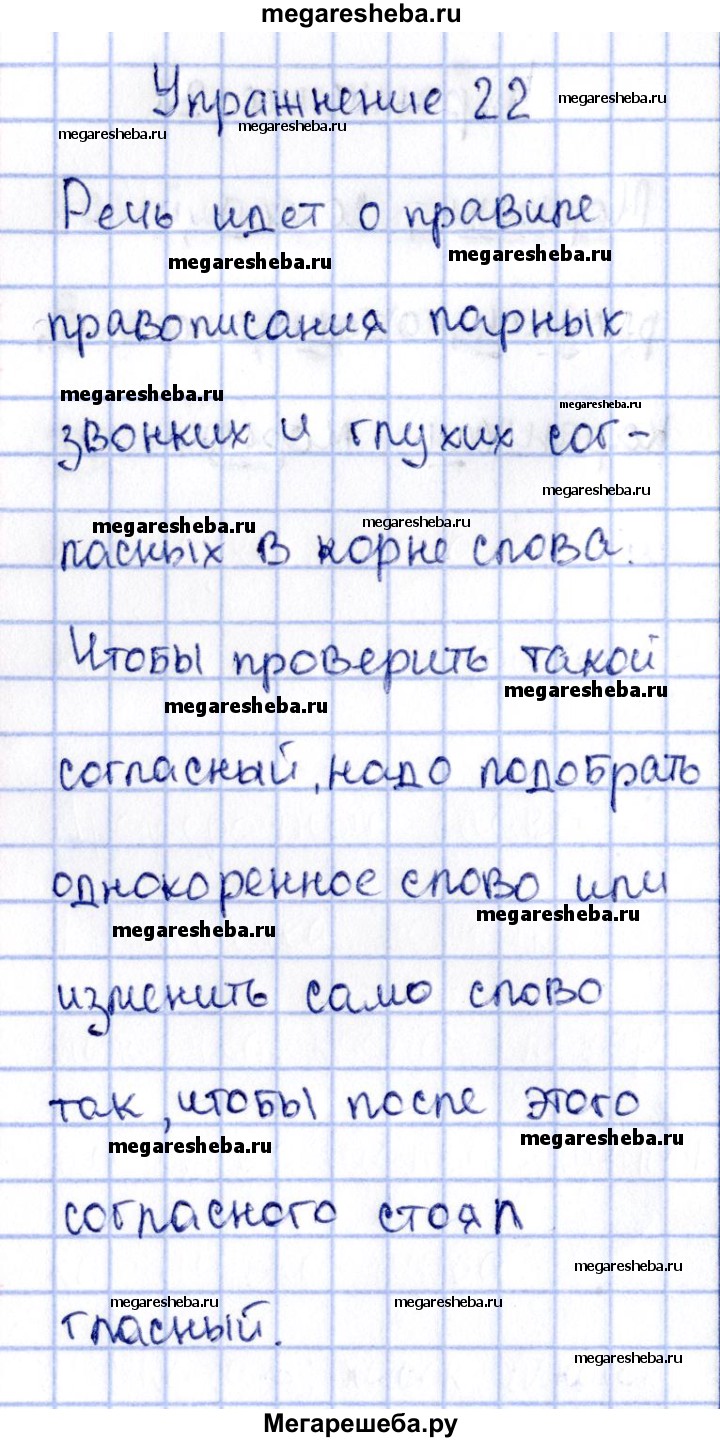 megaresheba.ru
Упражнение 22
megaresheba.ru
megaresheba.ru
megaresheba.ru
Речь идет о правиле
megaresheba.ru
megaresheba.ru
правописания парных
megaresheba.ru
megaresheba.ru
звонких и глухих сог-
megaresheba.ru
megaresheba.ru
megaresheba.ru
ласных в корне слова.
Чтобы проверить такой
megaresheba.ru
megaresheba.ru
согласный, надо подобрать
однокоренное слово или
megaresheba.ru
megaresheba.ru
изменить само слово
так, чтобы после этого
megaresheba.ru
megaresheba.ru
согласного стоял
megaresheba.ru
megaresheba.ru
megaresheba.ru
гласный.
megaresheba.ru
Мегарешеба.ру